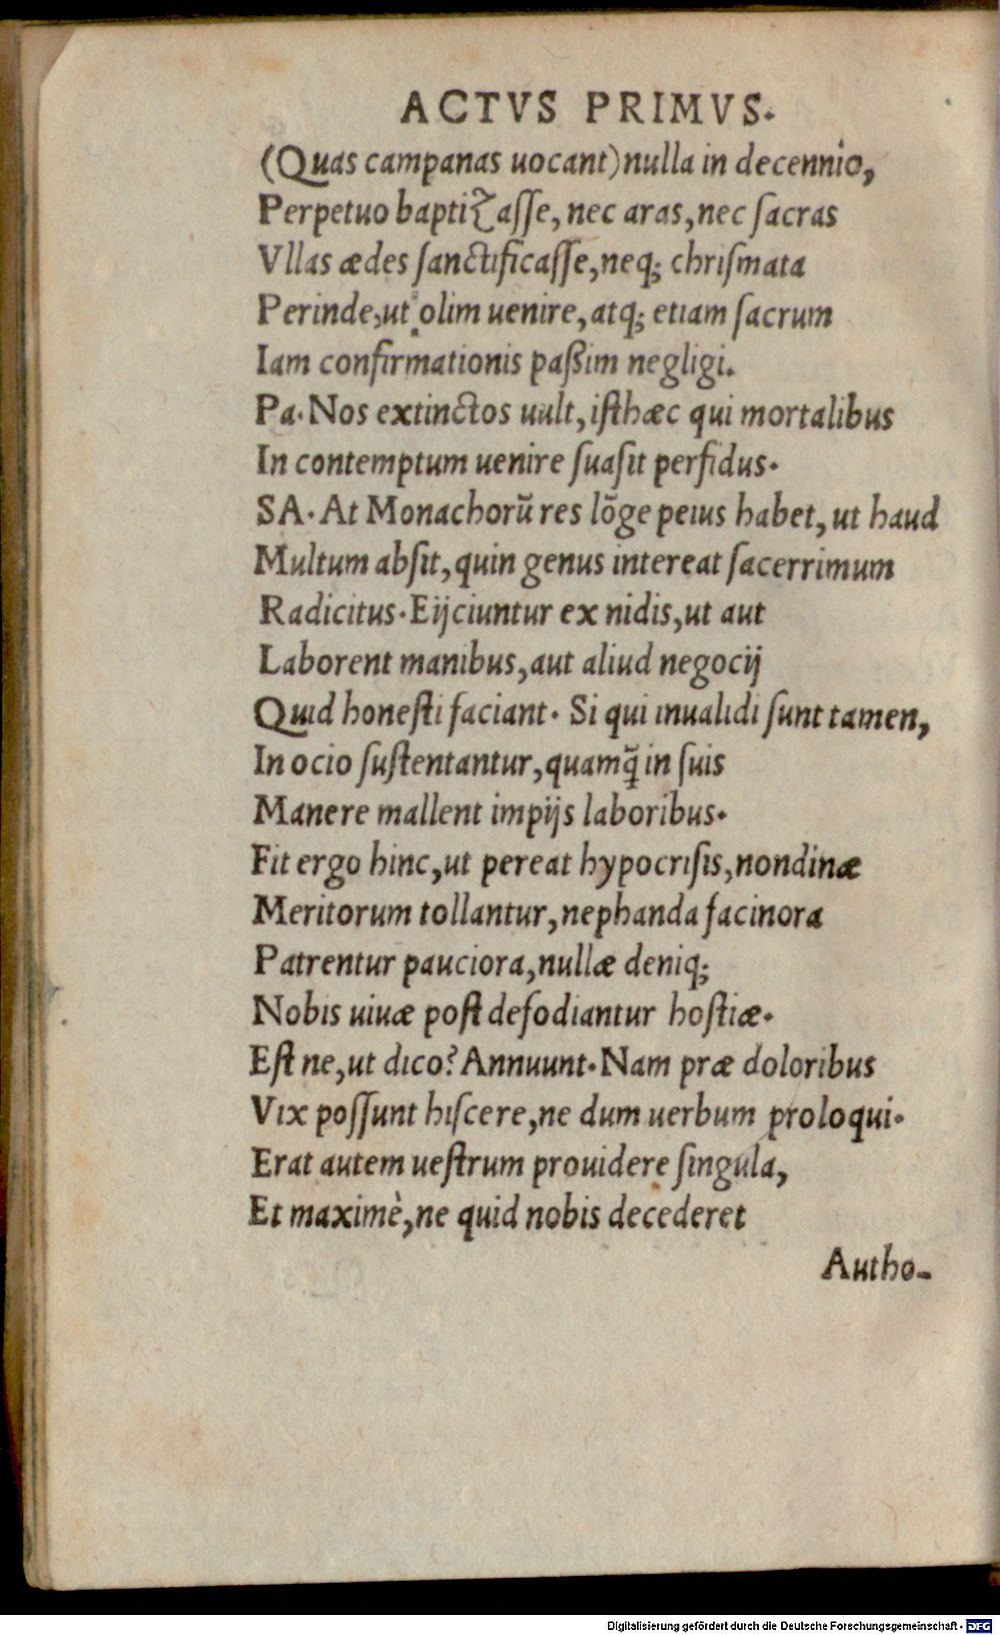 ACTVS PRIMVS.
(Quas campanas uocant) nulla in decennio,
Perpetuo baptizaſſe, nec aras, nec ſacras
Vllas ædes ſanctificaſſe, neq; chriſmata
Perinde, ut olim uenire, atq; etiam ſacrum
Iam confirmationis paßim negligi.
Pa. Nos extinctos uult, iſthæc qui mortalibus
In contemptum uenire ſuaſit perfidus.
SA. At Monachorũ res lõge peius habet, ut haud
Multum abſit, quin genus intereat ſacerrimum
Radicitus. Eijciuntur ex nidis, ut aut
Laborent manibus, aut aliud negocij
Quid honeſti faciant. Si qui inualidi ſunt tamen,
In ocio ſuſtentantur, quamq̃ in ſuis
Manere mallent impijs laboribus.
Fit ergo hinc, ut pereat hypocriſis, nondinæ
Meritorum tollantur, nephanda facinora
Patrentur pauciora, nullæ deniq;
Nobis uiuæ poſt defodiantur hoſtiæ.
Eſt ne, ut dico? Annuunt. Nam præ doloribus
Vix poſſunt hiſcere, ne dum uerbum proloqui.
Erat autem ueſtrum prouidere ſingula,
Et maximè, ne quid nobis decederet
Autho-
Digitalisierung gefördert durch die Deutsche Forschungsgemeinschaft - DFG